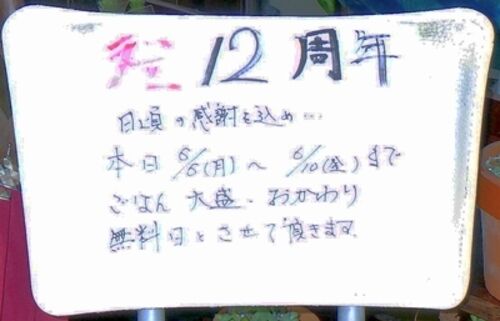 12周年
日頃の感謝を込め…
本日6/6(月)～6/10(金)まで
ごはん大盛・おかわり
無料日とさせて頂きます